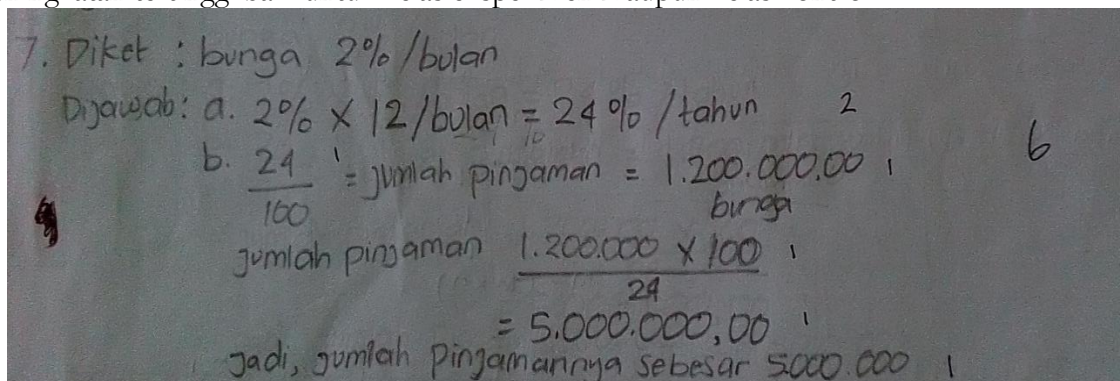 7. Diket : bunga 2% /bulan
Dijawab: a. 2% × 12/bulan = 24% /tahun 2
b. 24/100 = jumlah pinjaman = 1.200.000,00 1
bunga
6
jumlah pinjaman 1.200.000 × 100 / 24 1
= 5.000.000,00 1
Jadi, jumlah pinjamannya sebesar 5.000.000 1